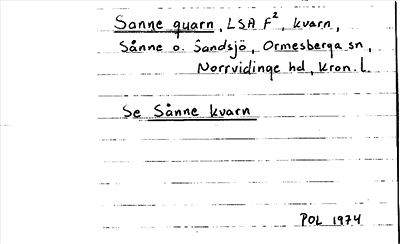 Sanne quarn, LSA F², kvarn,
Sånne o. Sandsjö, Ormesberga sn,
Norrvidinge hd, Kron. l.
Se Sånne kvarn
POL 1974